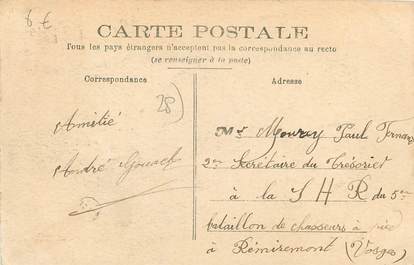 6 €
CARTE POSTALE
Tous les pays étrangers n'acceptent pas la correspondance au recto
(se renseigner à la poste)
Correspondance
Adresse
28)
Amitié
André
Mr Mouray Paul
2me Secrétaire du Trésorier
à la S H R du 5me
bataillon de chasseurs à pied
à Rémiremont (Vosges)